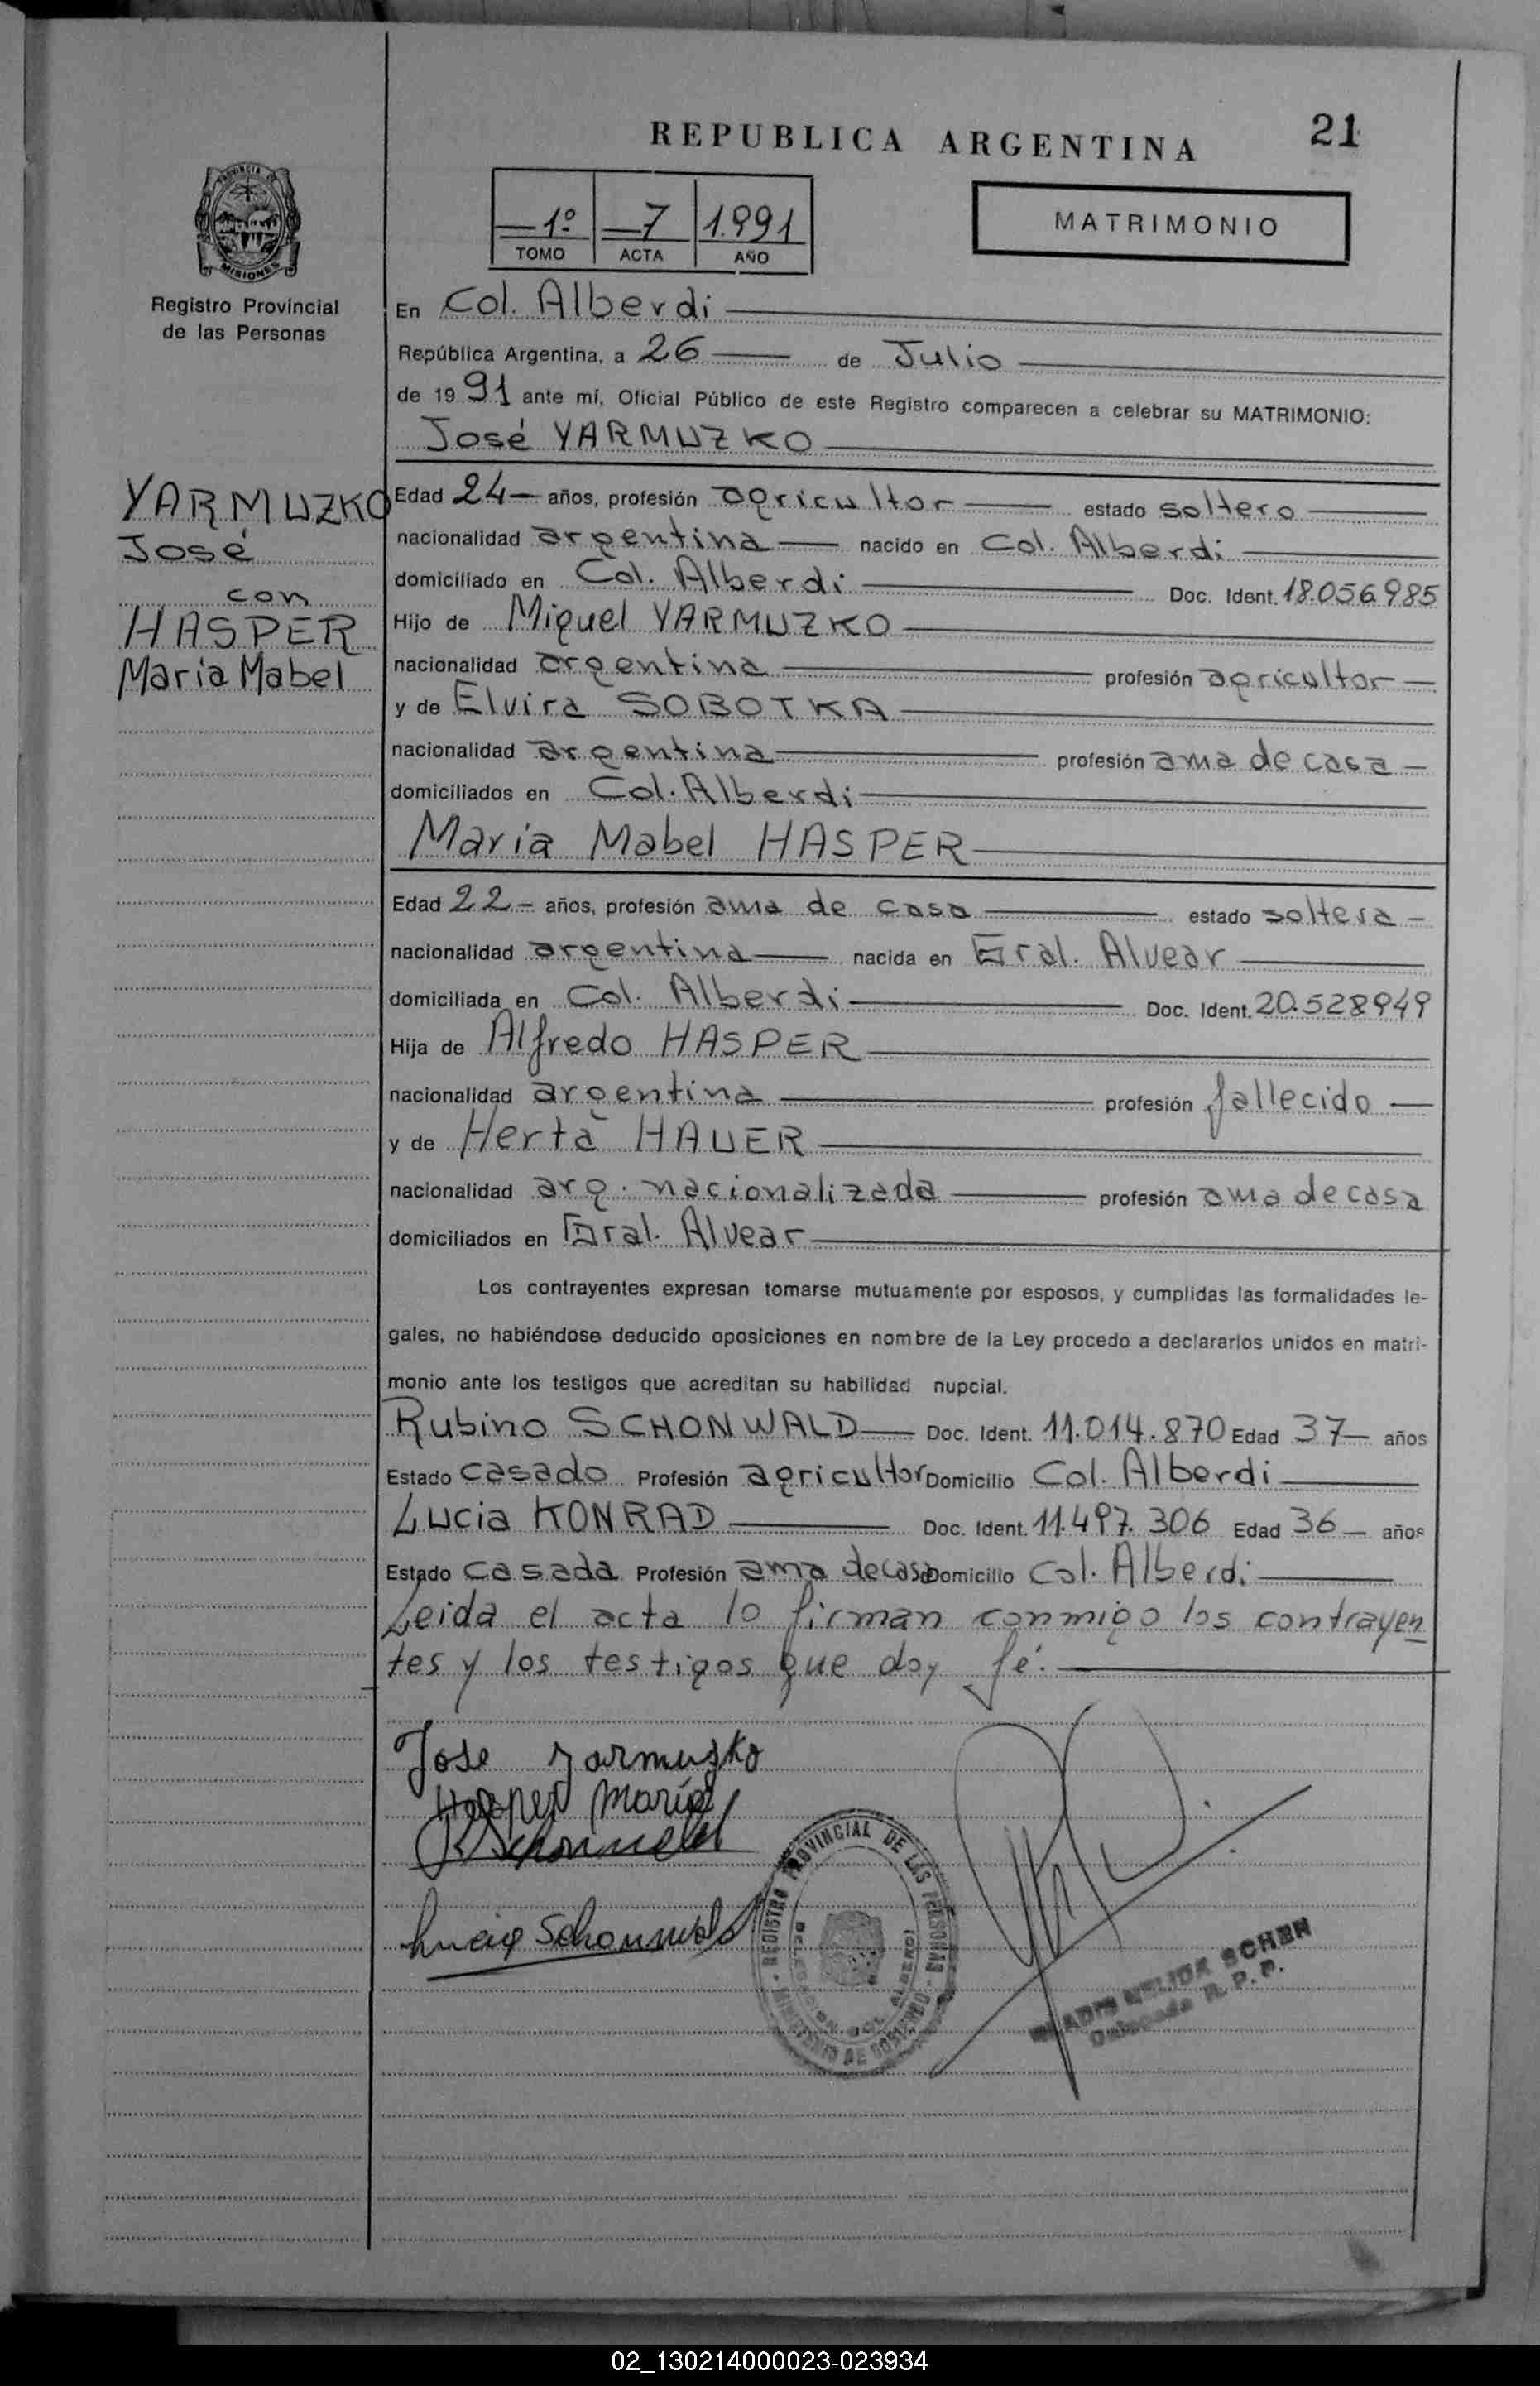 REPUBLICA ARGENTINA
21
PROVINCIA DE
MISIONES
Registro Provincial
de las Personas
1º 7 1.991
TOMO ACTA AÑO
MATRIMONIO
En Col. Alberdi
República Argentina, a 26 de Julio
de 19 91 ante mí, Oficial Público de este Registro comparecen a celebrar su MATRIMONIO:
José YARMUZKO
YARMUZKO
José
con
HASPER
Maria Mabel
Edad 24 años, profesión agricultor estado soltero
nacionalidad argentina nacido en Col. Alberdi
domiciliado en Col. Alberdi Doc. Ident. 18.056.985
Hijo de Miguel YARMUZKO
nacionalidad argentina profesión agricultor
y de Elvira SOBOTKA
nacionalidad argentina profesión ama de casa
domiciliados en Col. Alberdi
Maria Mabel HASPER
Edad 22 años, profesión ama de casa estado soltera
nacionalidad argentina nacida en Gral. Alvear
domiciliada en Col. Alberdi Doc. Ident. 20.528949
Hija de Alfredo HASPER
nacionalidad argentina profesión fallecido
y de Herta HAUER
nacionalidad arg. nacionalizada profesión ama de casa
domiciliados en Gral. Alvear
Los contrayentes expresan tomarse mutuamente por esposos, y cumplidas las formalidades le-
gales, no habiéndose deducido oposiciones en nombre de la Ley procedo a declararlos unidos en matri-
monio ante los testigos que acreditan su habilidad nupcial.
Rubino SCHONWALD Doc. Ident. 11.014.870 Edad 37 años
Estado casado Profesión agricultor Domicilio Col. Alberdi
Lucia KONRAD Doc. Ident. 11.497.306 Edad 36 años
Estado casada Profesión ama de casa Domicilio Col. Alberdi
Leida el acta lo firman conmigo los contrayen
tes y los testigos que doy fé.
Jose Yarmuzko
Hasper Maria
R Schonwald
Lucia Schonwald
REGISTRO PROVINCIAL DE LAS PERSONAS
MINISTERIO DE GOBIERNO
DELEGACION COL. ALBERDI
NELIDA SCHEN
Delegada R. P. P.
02_130214000023-023934